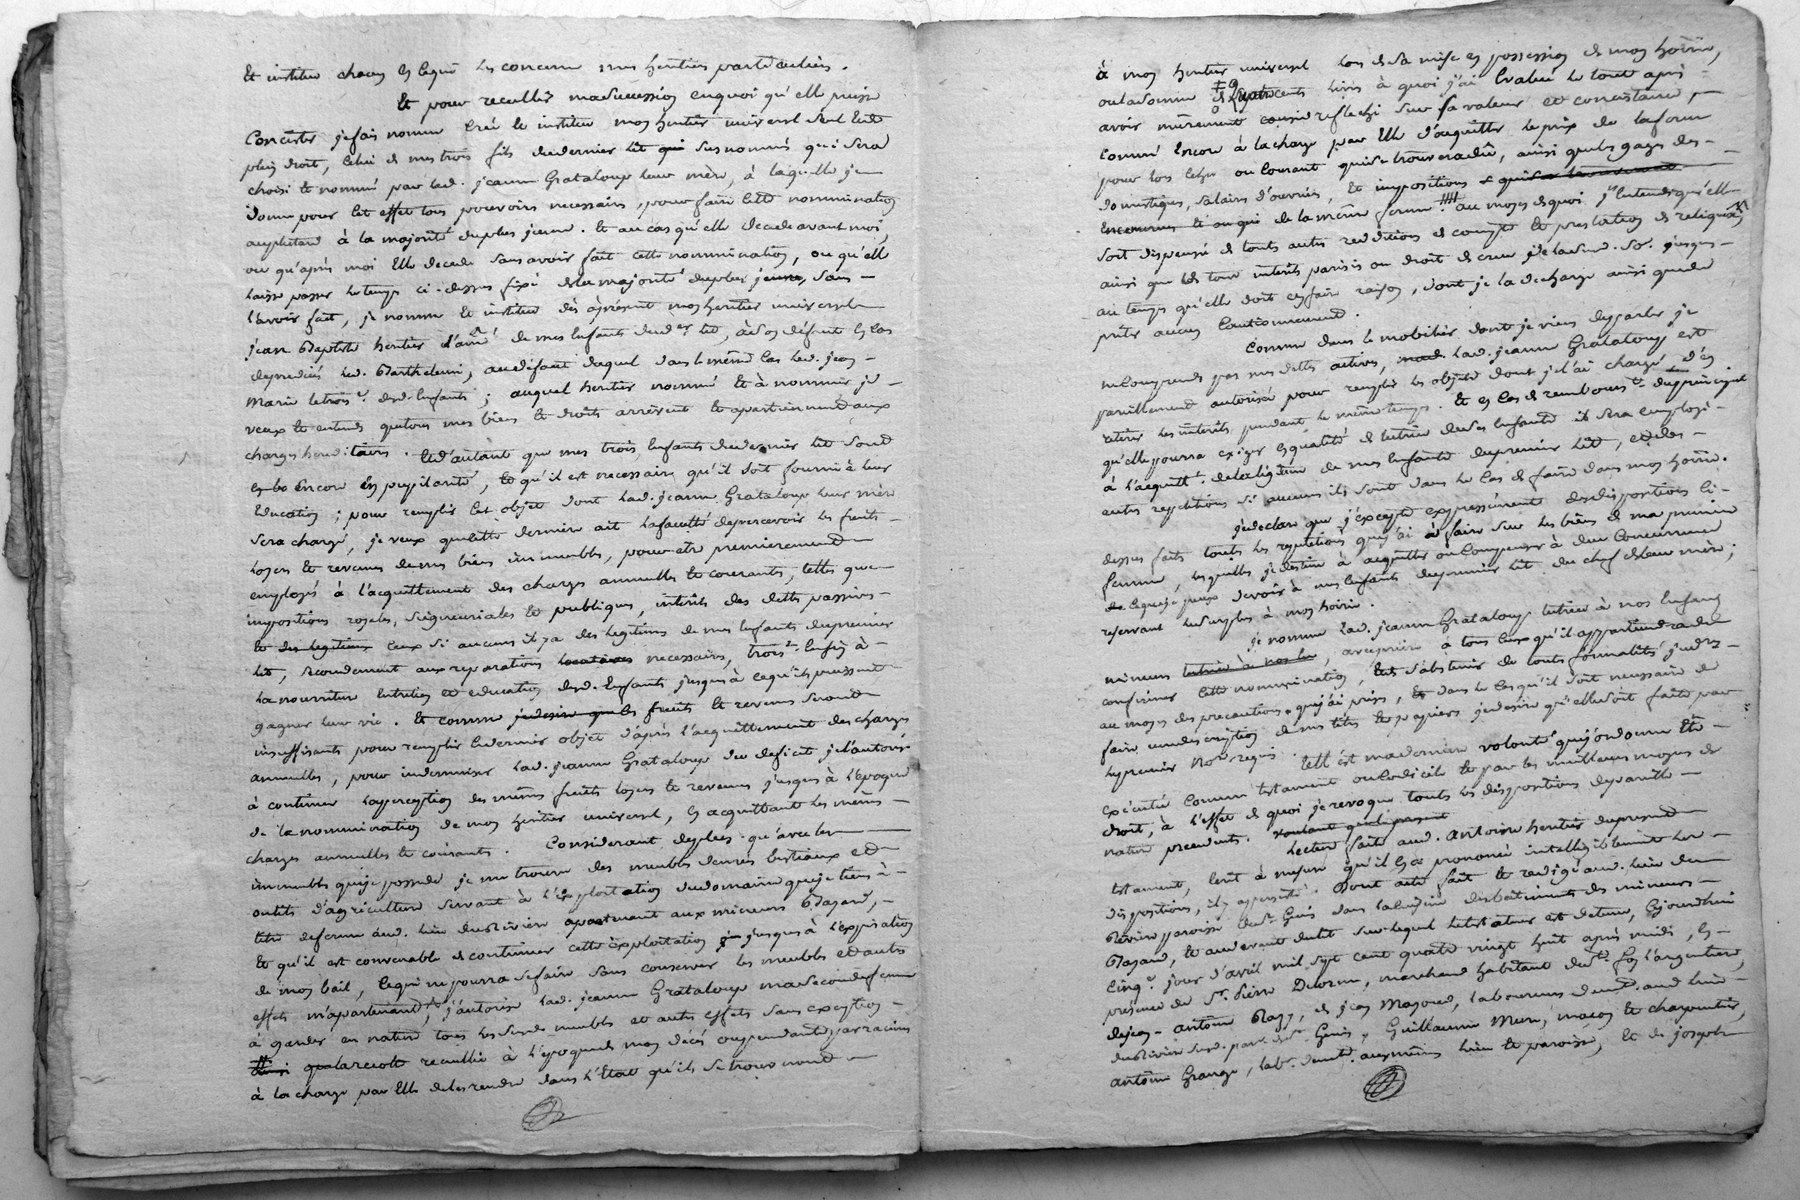 et institue chacun en ce qui les concerne mes heritiers particuliers.
Et pour recueillir ma succession en quoi qu'elle puisse
Consister je fais nomme Crée et institue mon heritier universel seul et de
plein droit, celui de mes trois fils du dernier lit qui sera
choisi et nommé par lad. jeanne Grataloup leur mère, à laquelle je
donne pour cet effet tous pouvoirs necessaires, pour faire cette nommination
à la majorité du plus jeune. et au cas qu'elle decede avant moi,
ou qu'après moi Elle decede sans avoir fait cette nommination, ou qu'elle
laisse passer le temps ci-dessus fixé de la majorité du plus jeune, sans
l'avoir fait, je nomme et institue dès àprésent mon heritier universel
jean Baptiste heritier l'ainé de mes Enfants dud. er lit, à son défaut En cas
de predécés led. Barthelemi, au défaut duquel dans le même cas led. jean
Marie le trois.e desd. Enfants; auquel heritier nommé et à nommer je
veux et entends que tous mes biens et droits arrivent et apartiennent aux
charges hereditaires. Et d'autant que mes trois Enfants du dernier lit sont
encore En pupilarité, et qu'il est necessaire qu'il soit fourni à leur
Education; pour remplir cet objet dont lad. jeanne Grataloup leur mère
sera chargé, je veux que cette dernière ait la faculté de percevoir les fruits
loyers et revenus de mes biens immeubles, pour etre premierement
employés à l'acquittement des charges annuelles et courantes, telles que
impositions royales, seigneuriales et publiques, interêts des dettes passives
et des legitimes ceux si aucuns il y a des legitimes de mes Enfants du premier
lit, secondement aux reparations locatives necessaires, trois.t Enfin à
la nourriture Entretien et education desd. Enfants jusques à ce qu'ils puissent
gagner leur vie. Et comme je desire que les fruits et revenus seront
insuffisants pour remplir ce dernier objet d'après l'acquittement des charges
annuelles, pour indemniser lad. jeanne Grataloup du deficit je l'autorise
à continuer la perception des mêmes fruits loyers et revenus jusques à l'epoque
de la nommination de mon heritier universel, En acquittant les mêmes
charges annuelles et courantes. Considerant de plus qu'avec les
immeubles que je possede je me trouve des meubles denrées bestiaux et
outils d'agriculture servant à l'Exploitation du domaine que je tiens à
titre de ferme aud. lieu du Rivier apartenant aux mineurs Bazard,
Et qu'il est convenable de continuer cette exploitation jusques à l'expiration
de mon bail, ce qui ne pourra se faire sans conserver les meubles et autres
effets m'apartenant, j'autorise lad. jeanne Grataloup ma seconde femme
à garder en nature tous lesd. meubles et autres effets sans exception
que la recolte recueillie à l'epoque de mon décès ou pendante par racines
à la charge par Elle de les rendre dans l'Etat qu'ils se trouveront
à mon heritier universel lors de sa mise en possession de mon hoirie,
ou la somme de quatre cents livres à quoi j'ai Evalué le tout après
avoir mûrement reflechi sur sa valeur et consistance,
comme Encore à la charge par Elle d'acquitter le prix de la ferme
pour lors echu ou courant qui se trouvera dû, ainsi que les gages des
domestiques, salaires d'ouvriers, et impositions
et ou qui de la même ferme au moyen de quoi j'entends qu'elle
soit dispensée de toute autre reddition de compte et prestation de reliquat,
ainsi que de tous interêts parisis ou droit de crue de lad. so. jusques
au temps qu'elle doit en faire raison, dont je la decharge ainsi que de
prêter aucun Cautionnement.
Comme dans le mobilier dont je viens de parler je
ne Comprends pas mes dettes actives, lad. jeanne Grataloup est
pareillement autorisée pour remplir les objets dont je l'ai chargé d'en
retirer les interêts pendant le même temps. Et en cas de rembours.t du principal
qu'elle pourra exiger En qualité de tutrice de ses Enfants il sera employé
à l'acquitt.t de la legitime de mes Enfants du premier lit, et des
autres repetitions si aucunes ils sont dans le cas de faire dans mon hoirie.
je declare que j'excepte expressément des dispositions ci
dessus faites toutes les repetitions que j'ai à faire sur les biens de ma premiere
femme, lesquelles je destine à acquitter ou Compenser à due Concurrence
de ce que je peux devoir à mes Enfants du premier lit du chef de leur mère,
reservant le surplus à mon hoirie.
je nomme lad. jeanne Grataloup tutrice à nos Enfans
mineurs tutrice à nos En, avec priere à tous ceux qu'il appartiendra de
confirmer cette nommination, et s'abstenir de toutes formalités jud.res
au moyen des precautions que j'ai prises, et dans le cas qu'il soit necessaire de
faire une description de mes titres et papiers je desire qu'elle soit faite par
le premier No.re requis. telle est ma derniere volonté que j'ordonne Etre
Exécutée comme testament ou Codicile et par les meilleurs moyens de
droit, à l'effet de quoi je revoque toutes les dispositions de pareille
nature precedentes. voulant que la présente
Lecture faite aud. antoine heritier du present
testament, Ecrit à mesure qu'il En a prononcé intelligiblement les
dispositions, il y a persisté. Dont acte fait et redigé aud. lieu du
Rivier paroisse de St. Genis dans la cuisine des batiments des mineurs
Bazard, et au devant du lit sur lequel le testateur est detenu, Cejourdhui
Cinq.e jour d'avril mil sept cent quatre vingt huit après midi, En
présence de Sr. Pierre Delorm, marchand habitant de St. Foy l'argentiere,
de jean-antoine Ragy, de jean Mazond, laboureurs dem.t aud. lieu
du Rivier susd. par. de St. Genis, Guillaume Mure, maçon et charpentier,
antoine Grange, lab.r dem.t au même lieu et paroisse, et de joseph